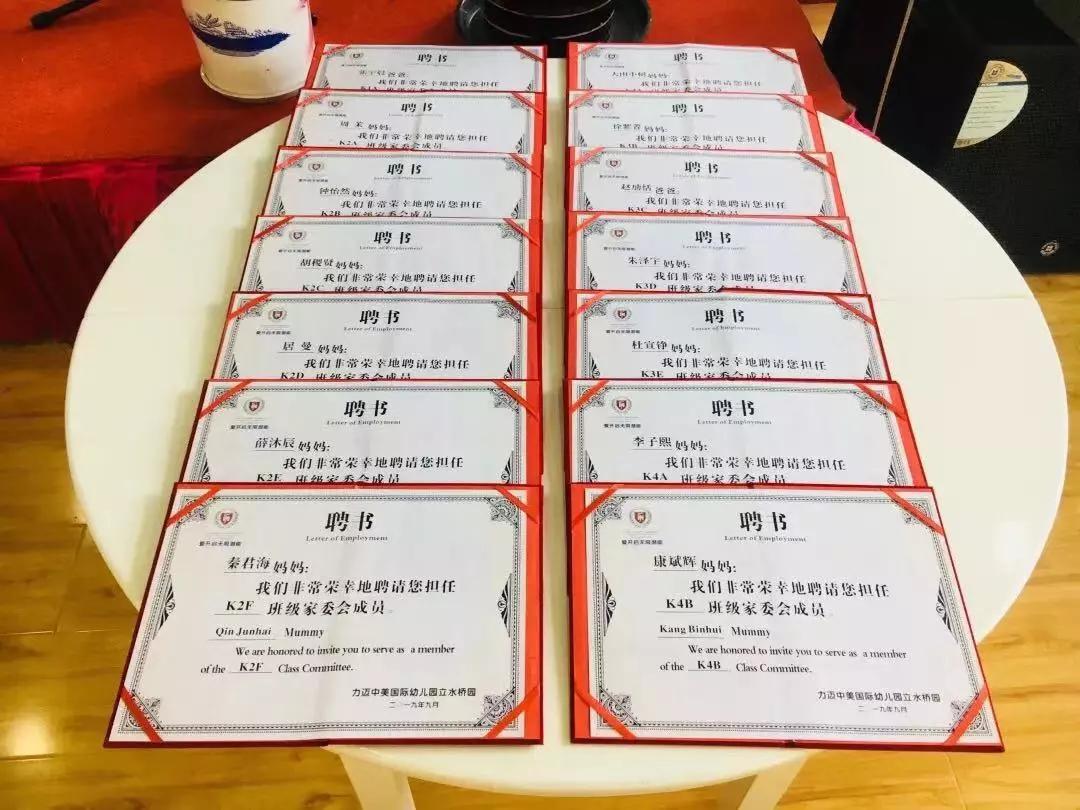 聘书
爸爸:
我们非常荣幸地聘请您担任
聘书
Letter of Employment
周 茉 妈妈:
我们非常荣幸地聘请您担任
K2A 班级家委会成员
聘书
Letter of Employment
钟怡然 妈妈:
我们非常荣幸地聘请您担任
K2B 班级家委会成员
聘书
Letter of Employment
胡稷贤 妈妈:
我们非常荣幸地聘请您担任
K2C 班级家委会成员
聘书
Letter of Employment
爱开启无限潜能
居 曼 妈妈:
我们非常荣幸地聘请您担任
K2D 班级家委会成员
聘书
Letter of Employment
爱开启无限潜能
薛沐辰 妈妈:
我们非常荣幸地聘请您担任
K2E 班级家委会成员
聘书
Letter of Employment
爱开启无限潜能
秦君海 妈妈:
我们非常荣幸地聘请您担任
K2F 班级家委会成员。
Qin Junhai Mummy
We are honored to invite you to serve as a member
of the K2F Class Committee.
力迈中美国际幼儿园立水桥园
二〇一九年九月
聘书
妈妈:
我们非常荣幸地聘请您担任
聘书
Letter of Employment
妈妈:
我们非常荣幸地聘请您担任
K3B 班级家委会成员
聘书
Letter of Employment
爸爸:
我们非常荣幸地聘请您担任
K3C 班级家委会成员
聘书
Letter of Employment
朱泽宇 妈妈:
我们非常荣幸地聘请您担任
K3D 班级家委会成员
聘书
Letter of Employment
爱开启无限潜能
杜宣铮 妈妈:
我们非常荣幸地聘请您担任
K3E 班级家委会成员
聘书
Letter of Employment
爱开启无限潜能
李子熙 妈妈:
我们非常荣幸地聘请您担任
K4A 班级家委会成员
聘书
Letter of Employment
爱开启无限潜能
康斌辉 妈妈:
我们非常荣幸地聘请您担任
K4B 班级家委会成员。
Kang Binhui Mummy
We are honored to invite you to serve as a member
of the K4B Class Committee.
力迈中美国际幼儿园立水桥园
二〇一九年九月